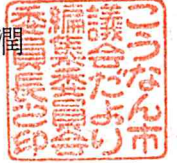 こうなん市
議会だより
編集委員会
委員長之印
潤